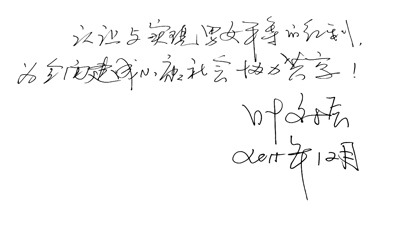 认识与实现男女平等的红利,
为全面建成小康社会协力共享!
叶文振
2015年12月